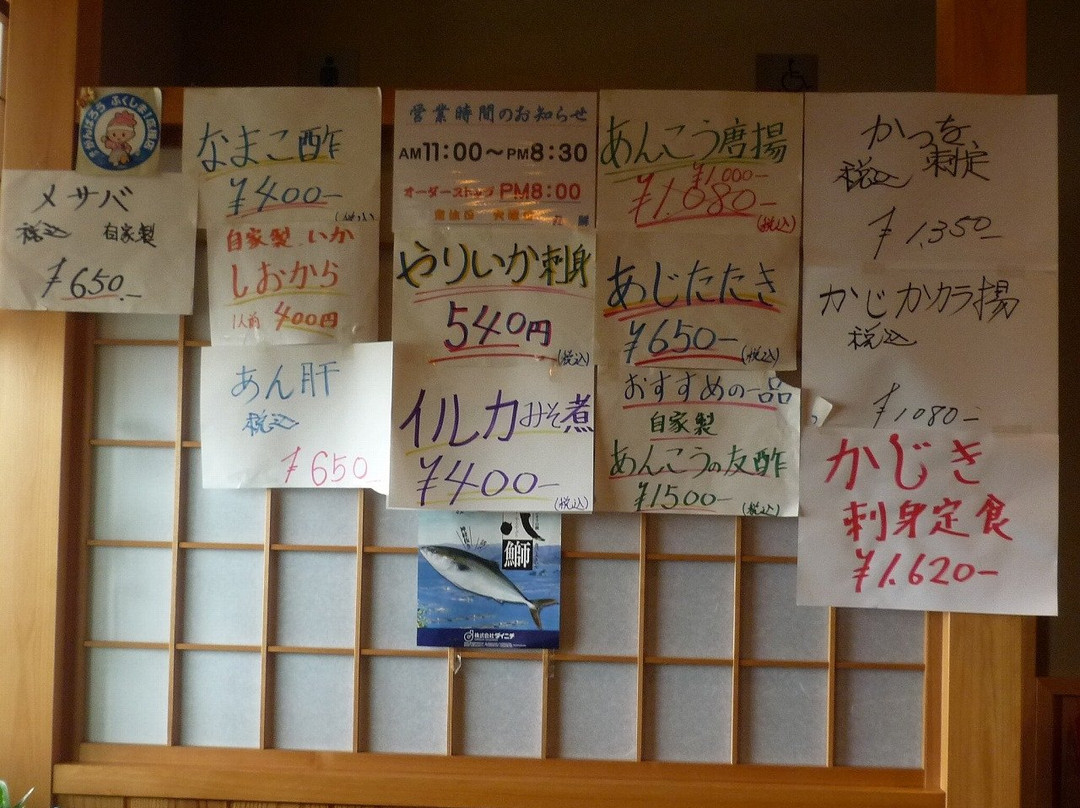 がんばろう ふくしま!
メサバ
税込 自家製
¥650.-
なまこ酢
¥400-
(税込)
自家製 いか
しおから
1人前 400円
あん肝
税込
¥650
営業時間のお知らせ
AM11:00～PM8:30
オーダーストップ PM8:00
やりいか刺身
540円
(税込)
イルカみそ煮
¥400-
(税込)
あんこう唐揚
¥1,000-
¥1,080-
(税込)
あじたたき
¥650-
(税込)
おすすめの一品
自家製
あんこうの友酢
¥1500-
(税込)
かつを
税込 刺定
¥1,350-
かじかカラ揚
税込
¥1080-
かじき
刺身定食
¥1,620-
鰤
株式会社ダイニチ